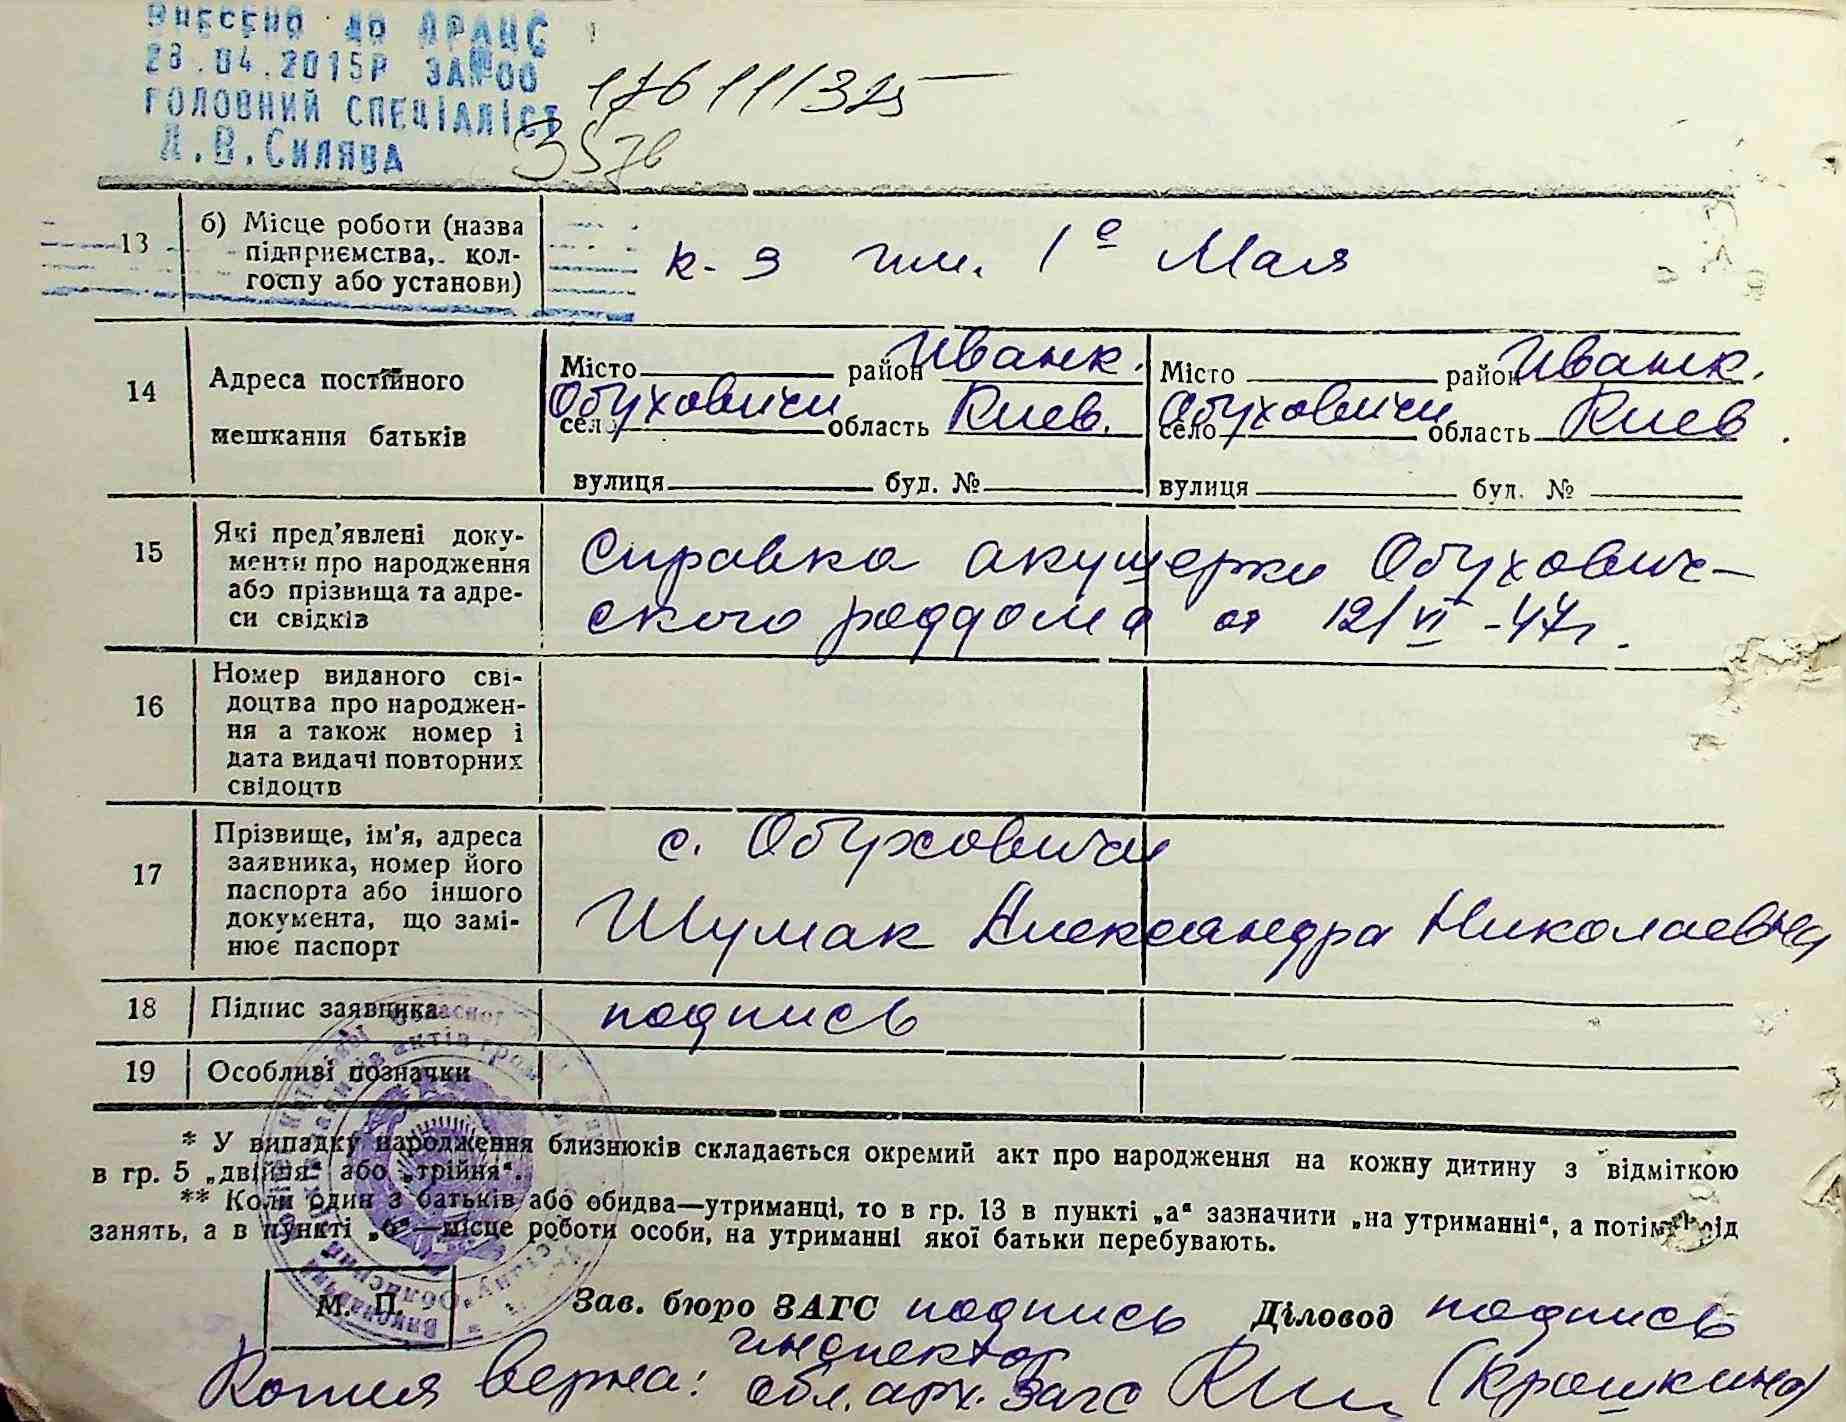 ВНЕСЕНО ДО ДРАЦС
28.04.2015Р ЗА №00
176111325
ГОЛОВНИЙ СПЕЦІАЛІСТ
3576
13
б) Місце роботи (назва
підприємства, кол-
госпу або установи)
к-з им. 1е Мая
14
Адреса постійного
мешкання батьків
Місто район Иванк.
село Обуховичи область Киев.
вулиця буд. №
Місто район Иванк.
село Обуховичи область Киев.
вулиця буд. №
15
Які пред'явлені доку-
менти про народження
або прізвища та адре-
си свідків
Справка акушерки Обухович-
ского роддома от 12/VI-47г.
16
Номер виданого сві-
доцтва про народжен-
ня а також номер і
дата видачі повторних
свідоцтв
17
Прізвище, ім'я, адреса
заявника, номер його
паспорта або іншого
документа, що замі-
нює паспорт
с. Обуховичи
Шумак Александра Николаевна
18
Підпис заявника
подпись
19
Особливі позначки
* У випадку народження близнюків складається окремий акт про народження на кожну дитину з відміткою
в гр. 5 „двійня“ або „трійня“.
** Коли один з батьків або обидва—утриманці, то в гр. 13 в пункті „а“ зазначити „на утриманні“, а потім рід
занять, а в пункті „б“—місце роботи особи, на утриманні якої батьки перебувають.
М. П.
Зав. бюро ЗАГС подпись Діловод подпись
Копия верна: инспектор
обл. арх. Загс (Крашкина)